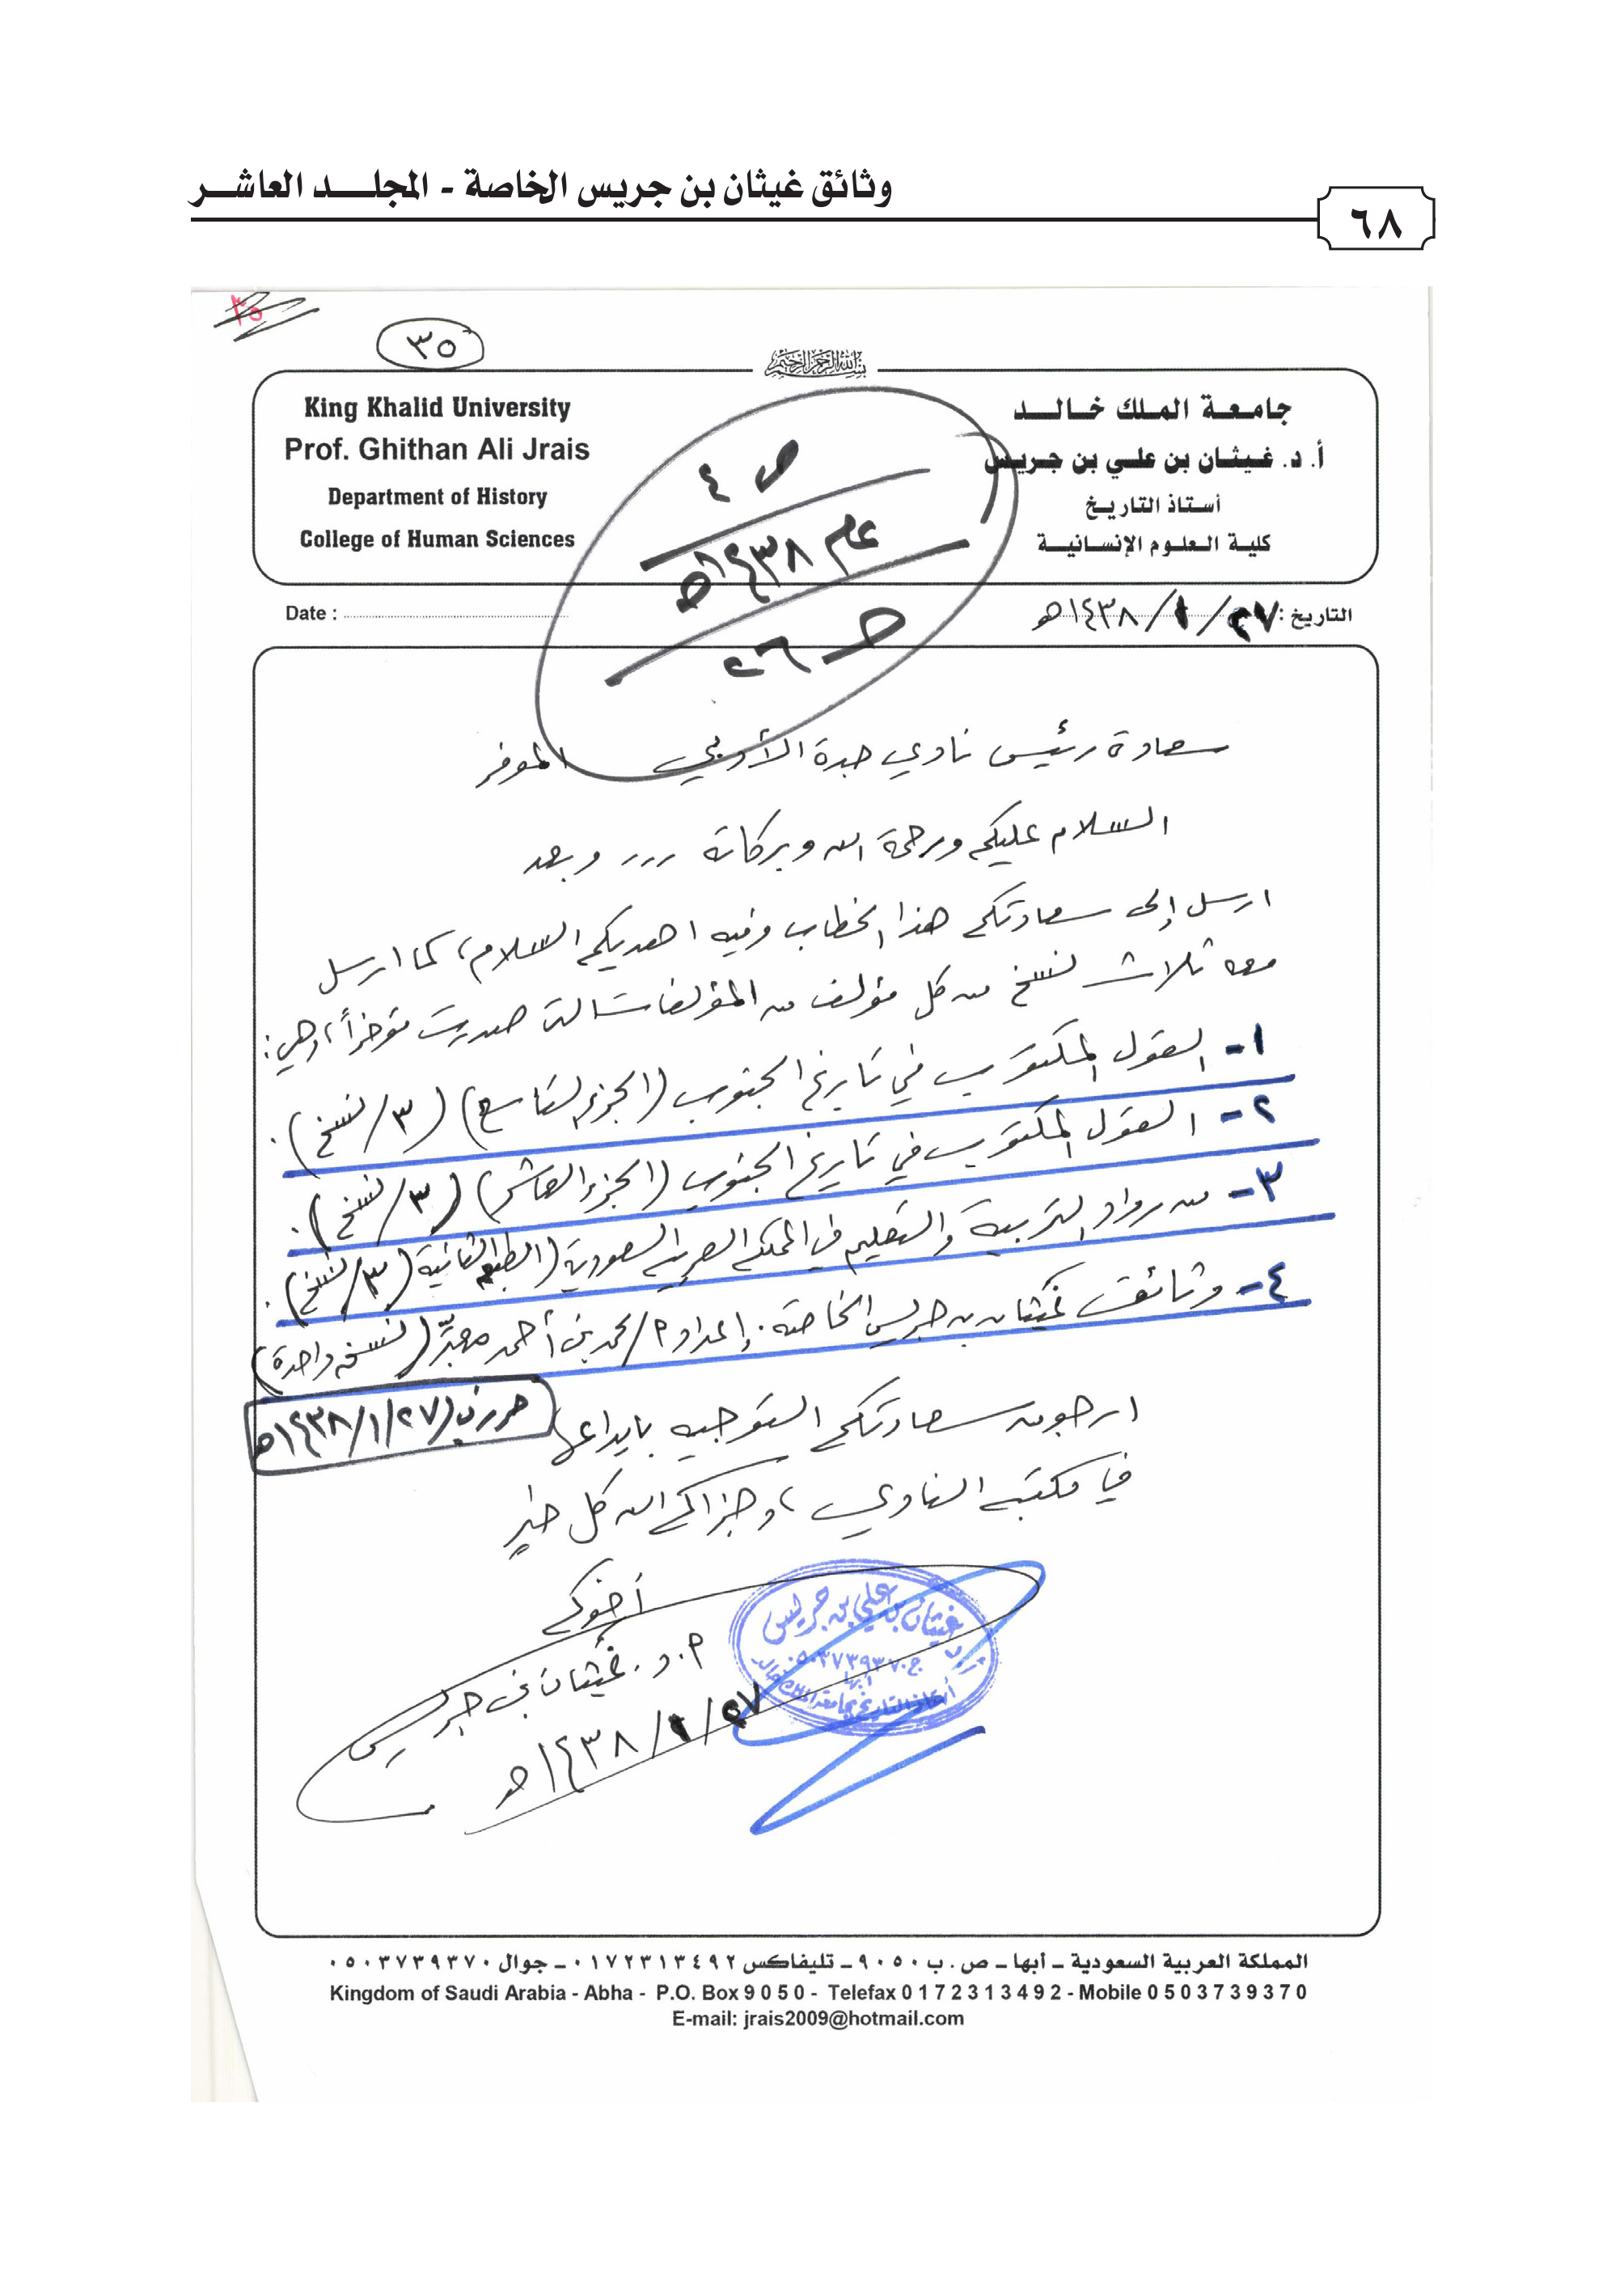 وثائق غيثان بن جريس الخاصة - المجلد العاشر
٦٨
٣٥
٣٥
بسم الله الرحمن الرحيم
King Khalid University
Prof. Ghithan Ali Jrais
Department of History
College of Human Sciences
جامعة الملك خالد
أ. د. غيثان بن علي بن جريس
أستاذ التاريخ
كلية العلوم الإنسانية
ص ٤
عام ١٤٣٨هـ
حـ ٢٦
Date :
التاريخ : ٢٧/١/١٤٣٨هـ
سعادة رئيس نادي جدة الأدبي الموقر
السلام عليكم ورحمة الله وبركاته ... وبعد
ارسل إلى سعادتكم هذا الخطاب وفيه اهديكم السلام، كما ارسل
معه ثلاث نسخ من كل مؤلف من المؤلفات التي صدرت مؤخراً، وهي:
١- القول المكتوب في تاريخ الجنوب (الجزء التاسع) (٣/نسخ).
٢- القول المكتوب في تاريخ الجنوب (الجزء العاشر) (٣/نسخ).
٣- من رواد التربية والتعليم في المملكة العربية السعودية (الطبعة الثانية) (٣/نسخ).
٤- وثائق غيثان بن جريس الخاصة. إعداد م/محمد بن أحمد معبّر (نسخة واحدة)
ارجو من سعادتكم التوجيه بايداعها
حرر في (٢٧/١/١٤٣٨هـ
في مكتبة النادي، وجزاكم الله كل خير
أخوكم
أ.د. غيثان بن جريس
٢٧/١/١٤٣٨هـ
غيثان بن علي بن جريس
ج.٠٥٠٣٧٣٩٣٧٠
أبها
أستاذ التاريخ بجامعة الملك خالد
المملكة العربية السعودية – أبها – ص . ب ٩٠٥٠ – تليفاكس ٠١٧٢٣١٣٤٩٢ – جوال ٠٥٠٣٧٣٩٣٧٠
Kingdom of Saudi Arabia - Abha - P.O. Box 9 0 5 0 - Telefax 0 1 7 2 3 1 3 4 9 2 - Mobile 0 5 0 3 7 3 9 3 7 0
E-mail: jrais2009@hotmail.com